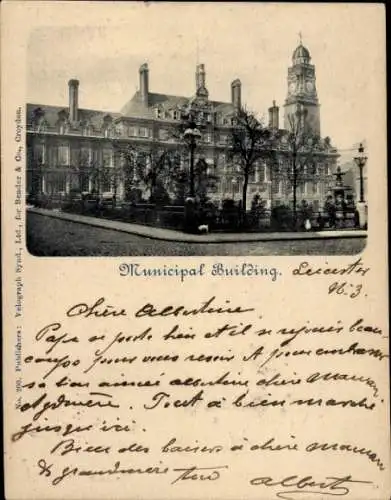 Municipal Building.
Leicester
No. 200. Publishers: Velograph Synd., Ltd., for Bender & Co., Croydon.
Chère Albertine
Papa se porte bien et il se rejouis beau-
coup pour vous revoir et pour embrasser
sa bien aimée albertine chère maman
et gdmère. Tout à bien marché
jusqu'ici.
Bien des baisers à chère maman
& grandmère ton Albert